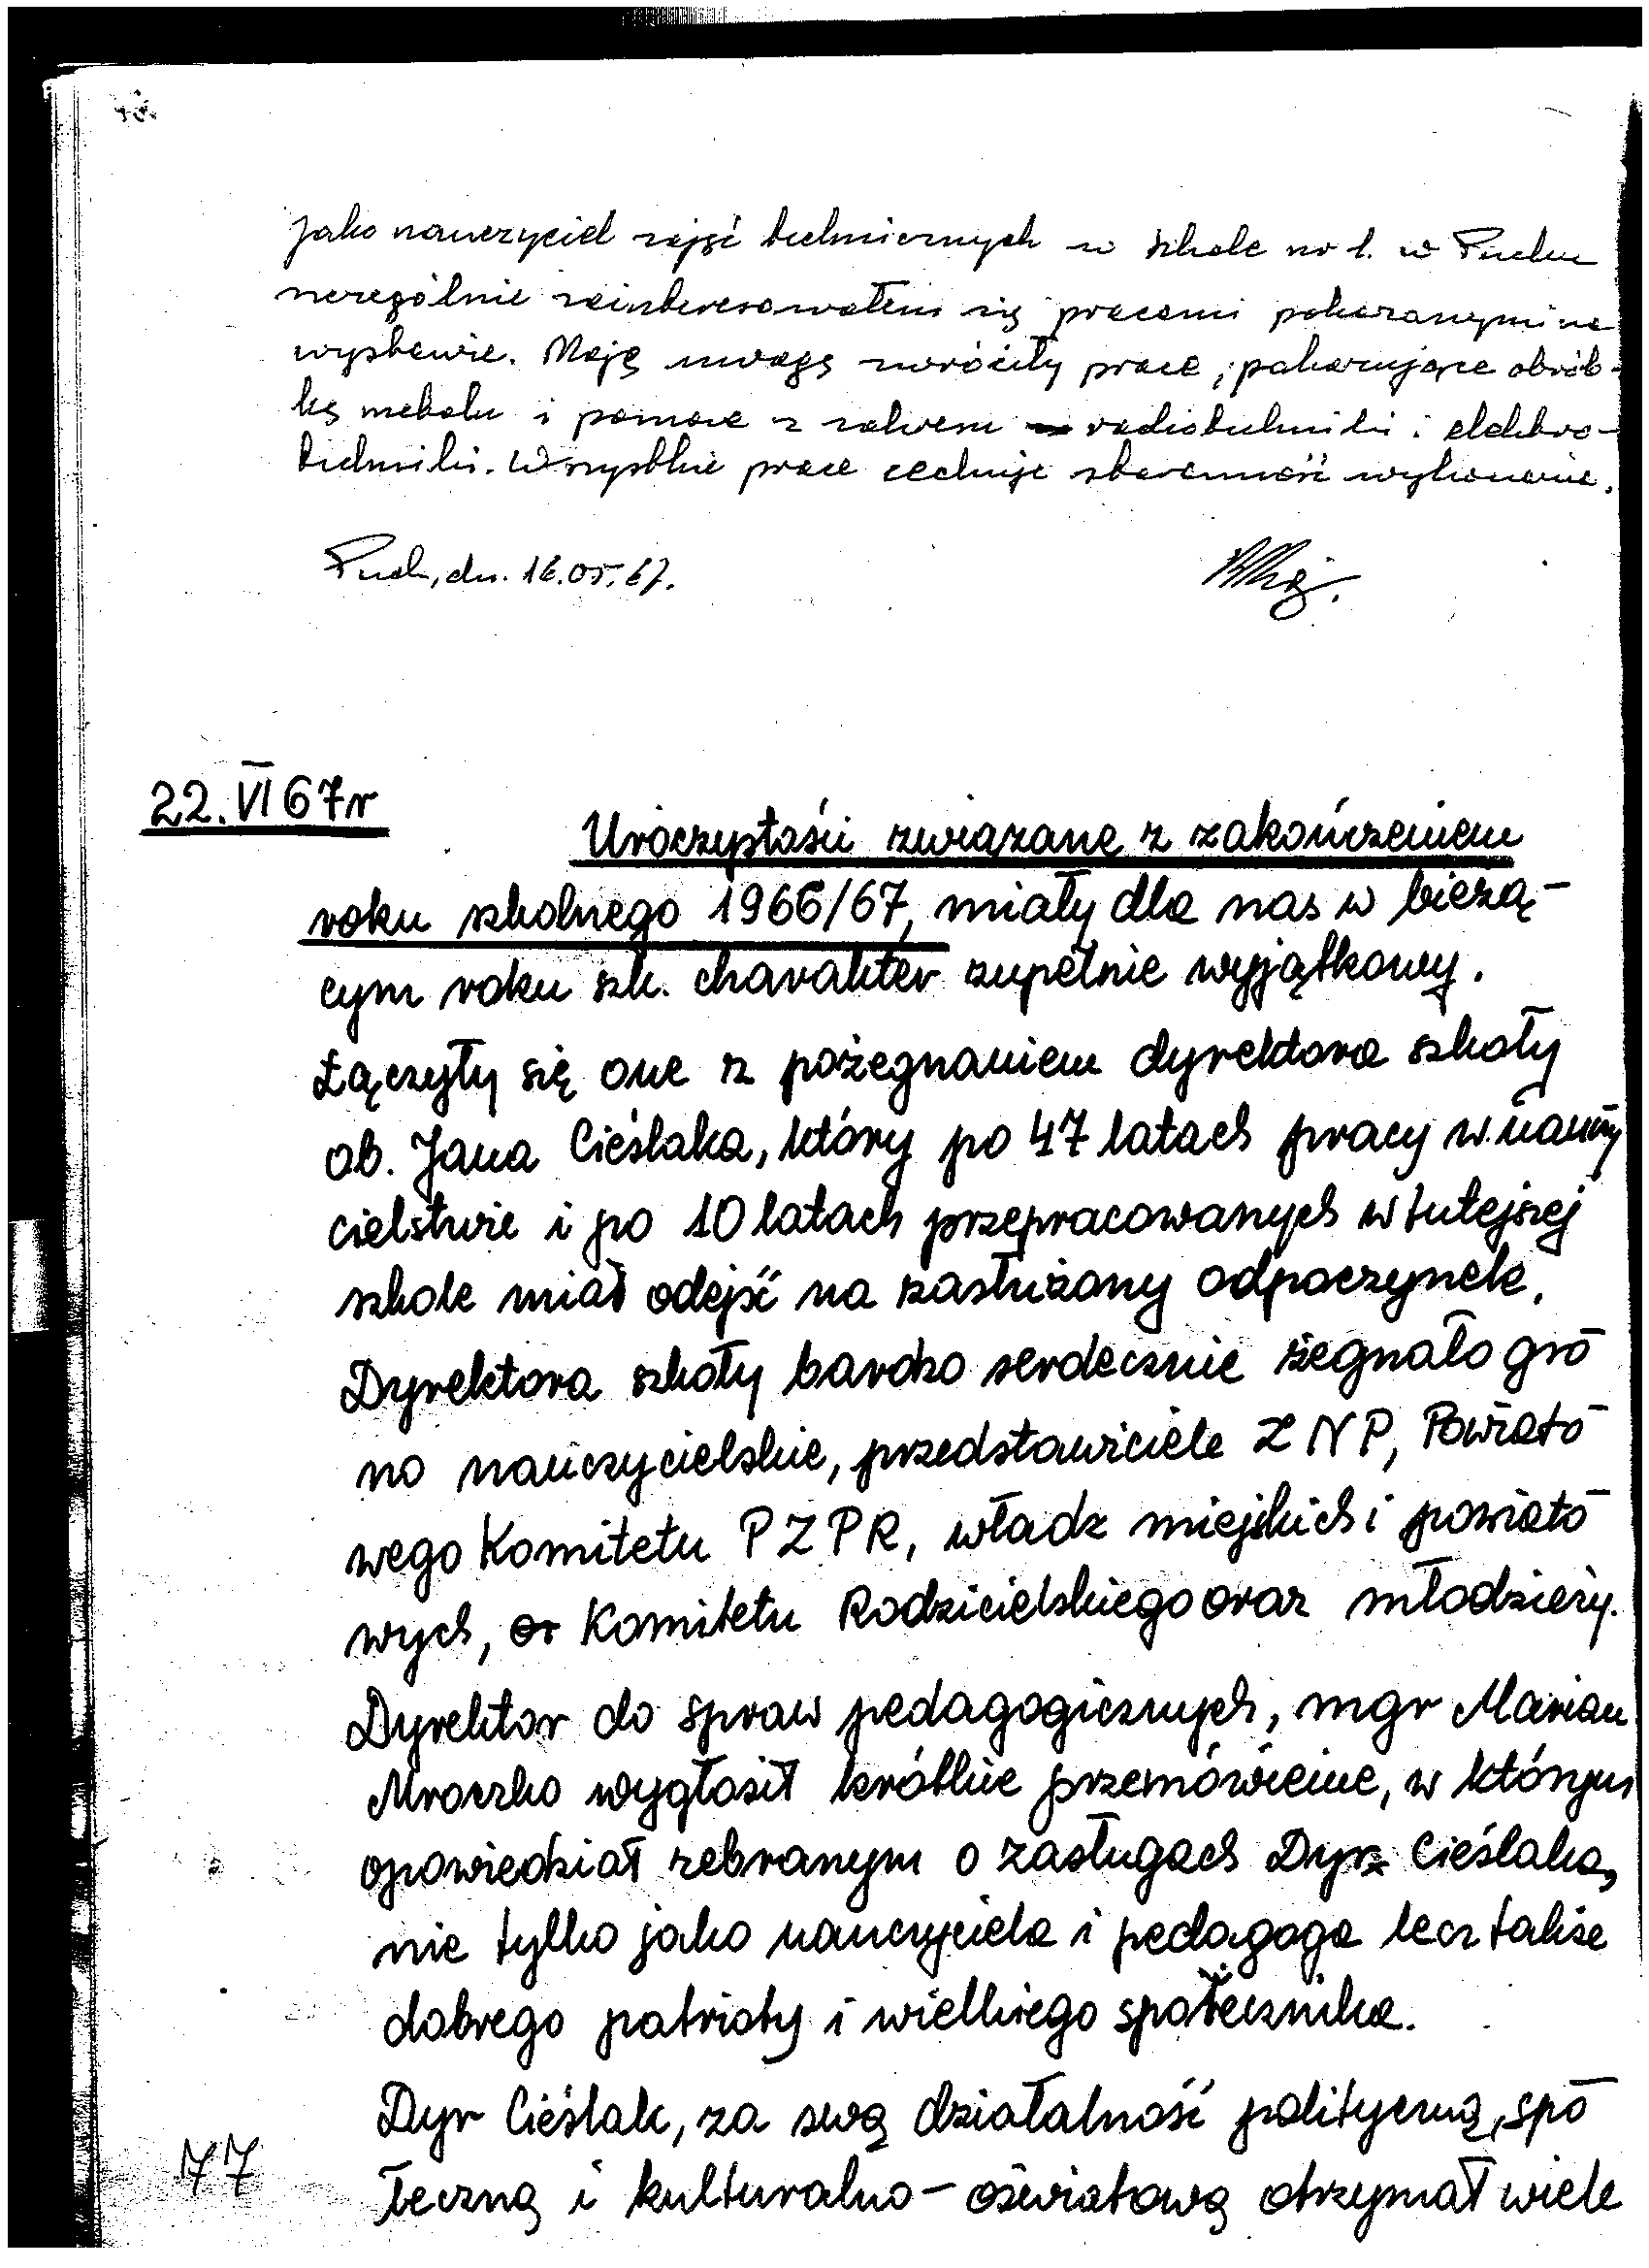 Jako nauczyciel zajęć technicznych w szkole nr 1. w Pucku
szczególnie zainteresowałem się pracami pokazanymi na
wystawie. Moją uwagę zwróciły prace, pokazujące obrób-
kę metalu i pomoce z zakresu radiotechniki i elektro-
techniki. Wszystkie prace cechuje staranność wykonania.
Puck, dn. 16.05.67.
22. VI 67r
Uroczystości związane z zakończeniem
roku szkolnego 1966/67, miały dla nas w bieżą-
cym roku szk. charakter zupełnie wyjątkowy.
Łączyły się one z pożegnaniem dyrektora szkoły
ob. Jana Cieślaka, który po 47 latach pracy w nauczy
cielstwie i po 10 latach przepracowanych w tutejszej
szkole miał odejść na zasłużony odpoczynek.
Dyrektora szkoły bardzo serdecznie żegnało gro-
no nauczycielskie, przedstawiciele ZNP, Powiato-
wego Komitetu PZPR, władz miejskich i powiato-
wych, or Komitetu Rodzicielskiego oraz młodzieży.
Dyrektor do spraw pedagogicznych, mgr Marian
Mroczko wygłosił krótkie przemówienie, w którym
opowiedział zebranym o zasługach Dyr. Cieślaka,
nie tylko jako nauczyciela i pedagoga lecz także
dobrego patrioty i wielkiego społecznika.
Dyr Cieślak, za swą działalność polityczną, spo-
łeczną i kulturalno-oświatową otrzymał wiele
77